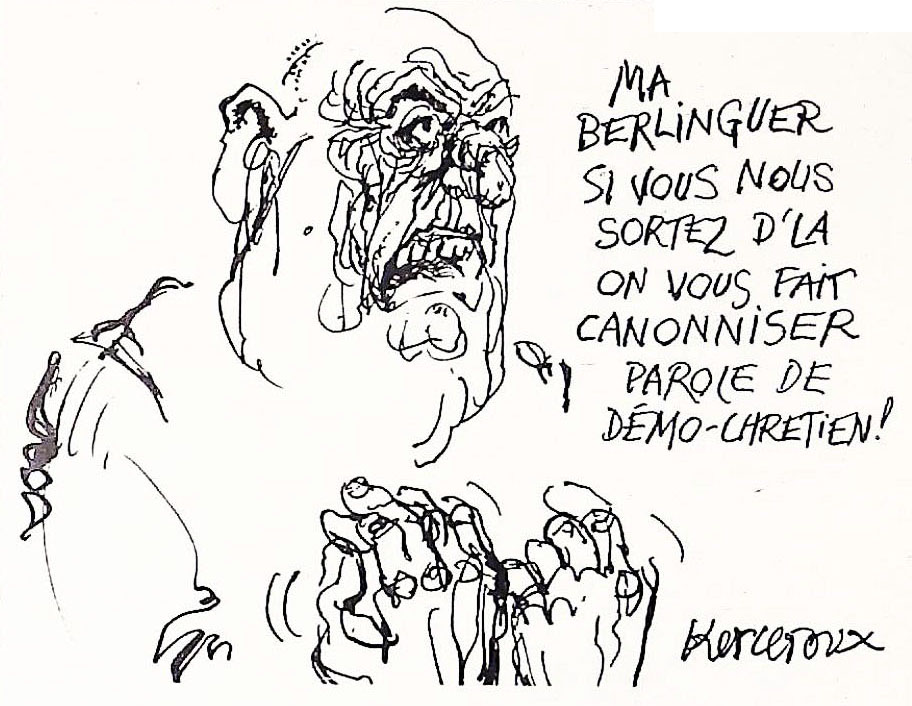 MA
BERLINGUER
SI VOUS NOUS
SORTEZ D'LA
ON VOUS FAIT
CANONNISER
PAROLE DE
DÉMO-CHRETIEN!
Kerceroux